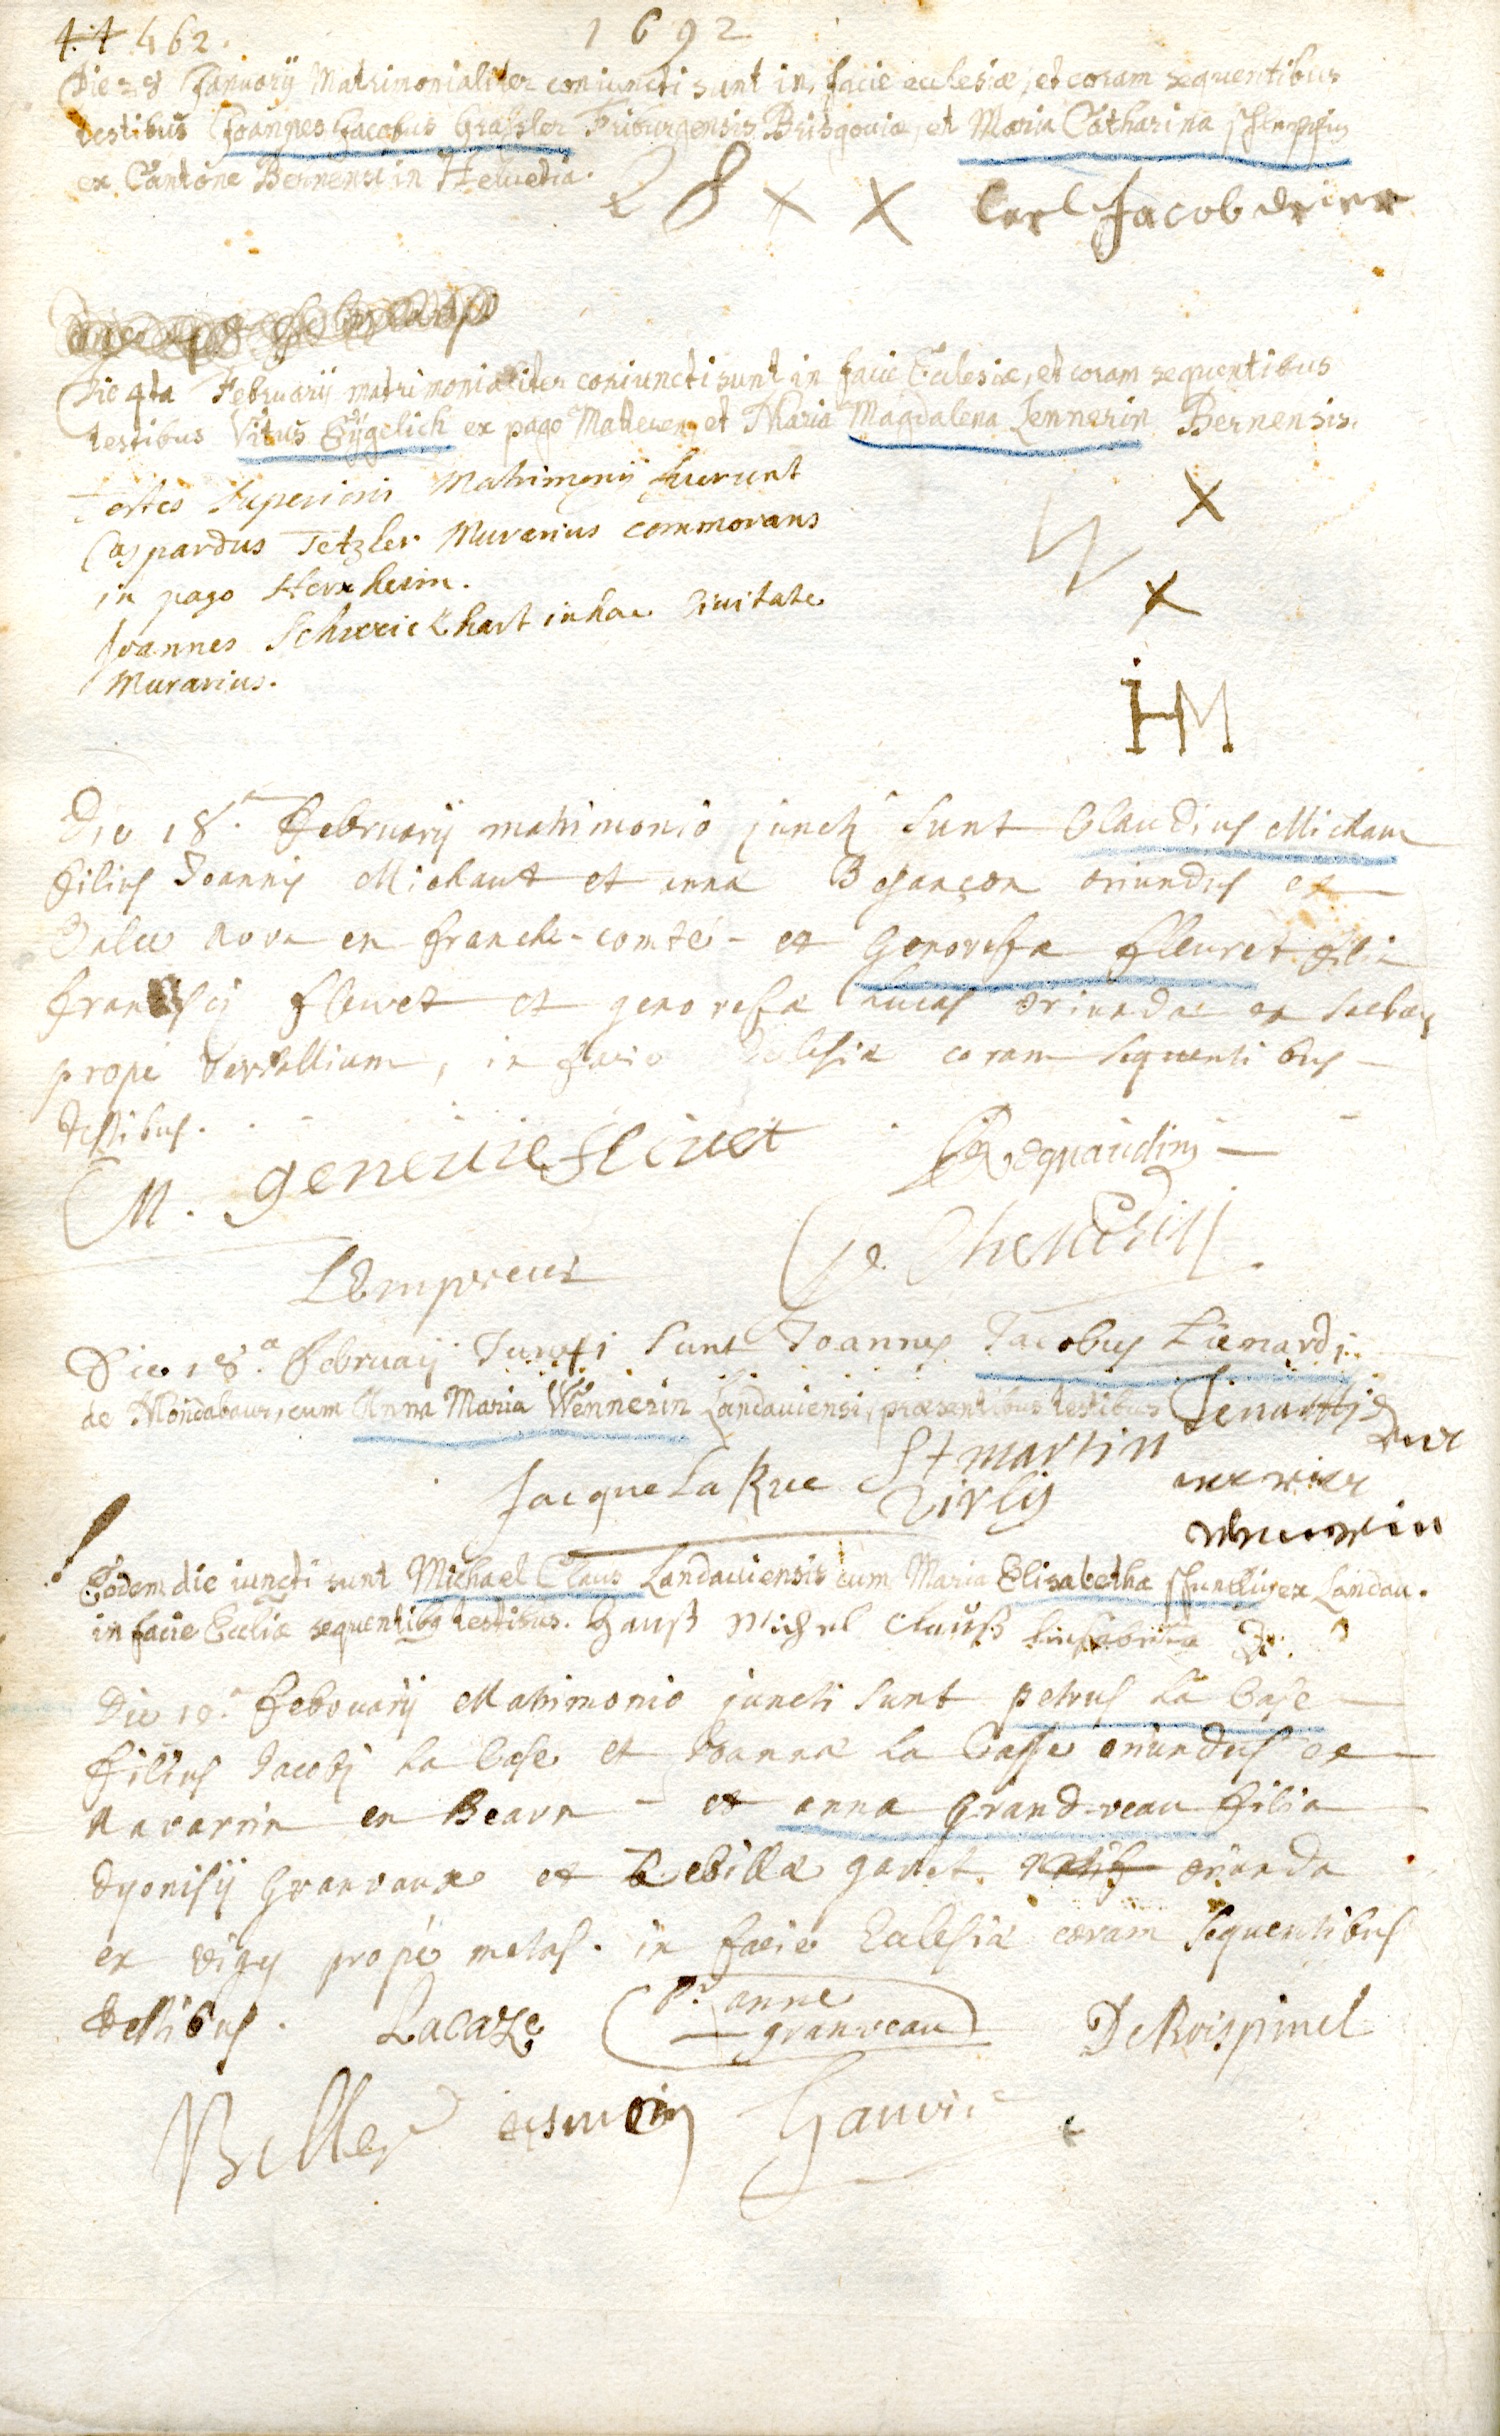 44 462.
1692
Die 28 Januarij Matrimonialiter coniuncti sunt in facie ecclesiæ, et coram sequentibus
testibus Joannes Jacobus Grassler Friburgensis Brisgoviæ, et Maria Catharina
ex Cantone Bernensi in Helvetia.
28 x x Carl Jacob
Die 4ta Februarij matrimonialiter coniuncti sunt in facie Ecclesiæ, et coram sequentibus
testibus Vitus Eÿgelich ex pago Matteren, et Maria Magdalena Lennerin Bernensis.
Testes superioris Matrimonij fuerunt
Caspardus Tetzler Murarius commorans
in pago Herxheim.
Joannes Schweickhart in hac Civitate
Murarius.
x
x
HM
Die 18.a Februarij matrimonio juncti sunt Claudius Michaut
filius Joannis Michaut et annæ Besançon oriundus ex
nova en franche-comté - et Genovefa fleuret filia
francisci fleuret et genovefæ Lucas oriunda ex
prope versallium, in facie Ecclesiæ coram sequentibus
testibus.
M. genevie fleuret
Lempereur
Die 18.a Februarij Juncti sunt Joannes Jacobus Lienard
de Mondabaur, cum Anna Maria Wennerin Landaviensi, præsentibus testibus
Jacque La Rue St martin
Eodem die iuncti sunt Michael Claus Landaviensis cum Maria Elisabetha ex Landau.
in facie Eccliæ sequentibg testibus. Hanß Michel Clauß
Die 18.a Februarij Matrimonio juncti sunt petrus La Case
filius Jacobi La Case et Joannæ La Casse oriundus ex
Navarrin en Bearn - et anna Grandveau filia
dyonisij Granvaux et Sebillæ oriunda
ex vigy prope metas. in facie Ecclesiæ coram sequentibus
testibus. Lacaze anne
granveau DeRoispinel
Beller